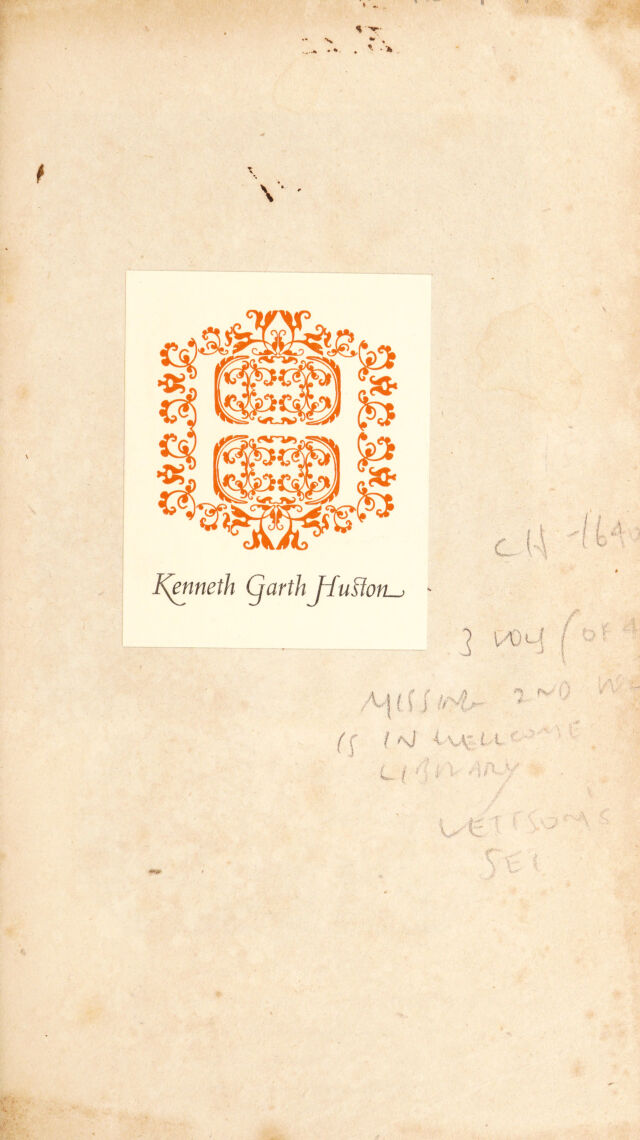 Kenneth Garth Huston
CH -1640
3 VOLS (OF 4
MISSING 2ND
IS IN WELLCOME
LIBRARY
LETTSOM'S
SET